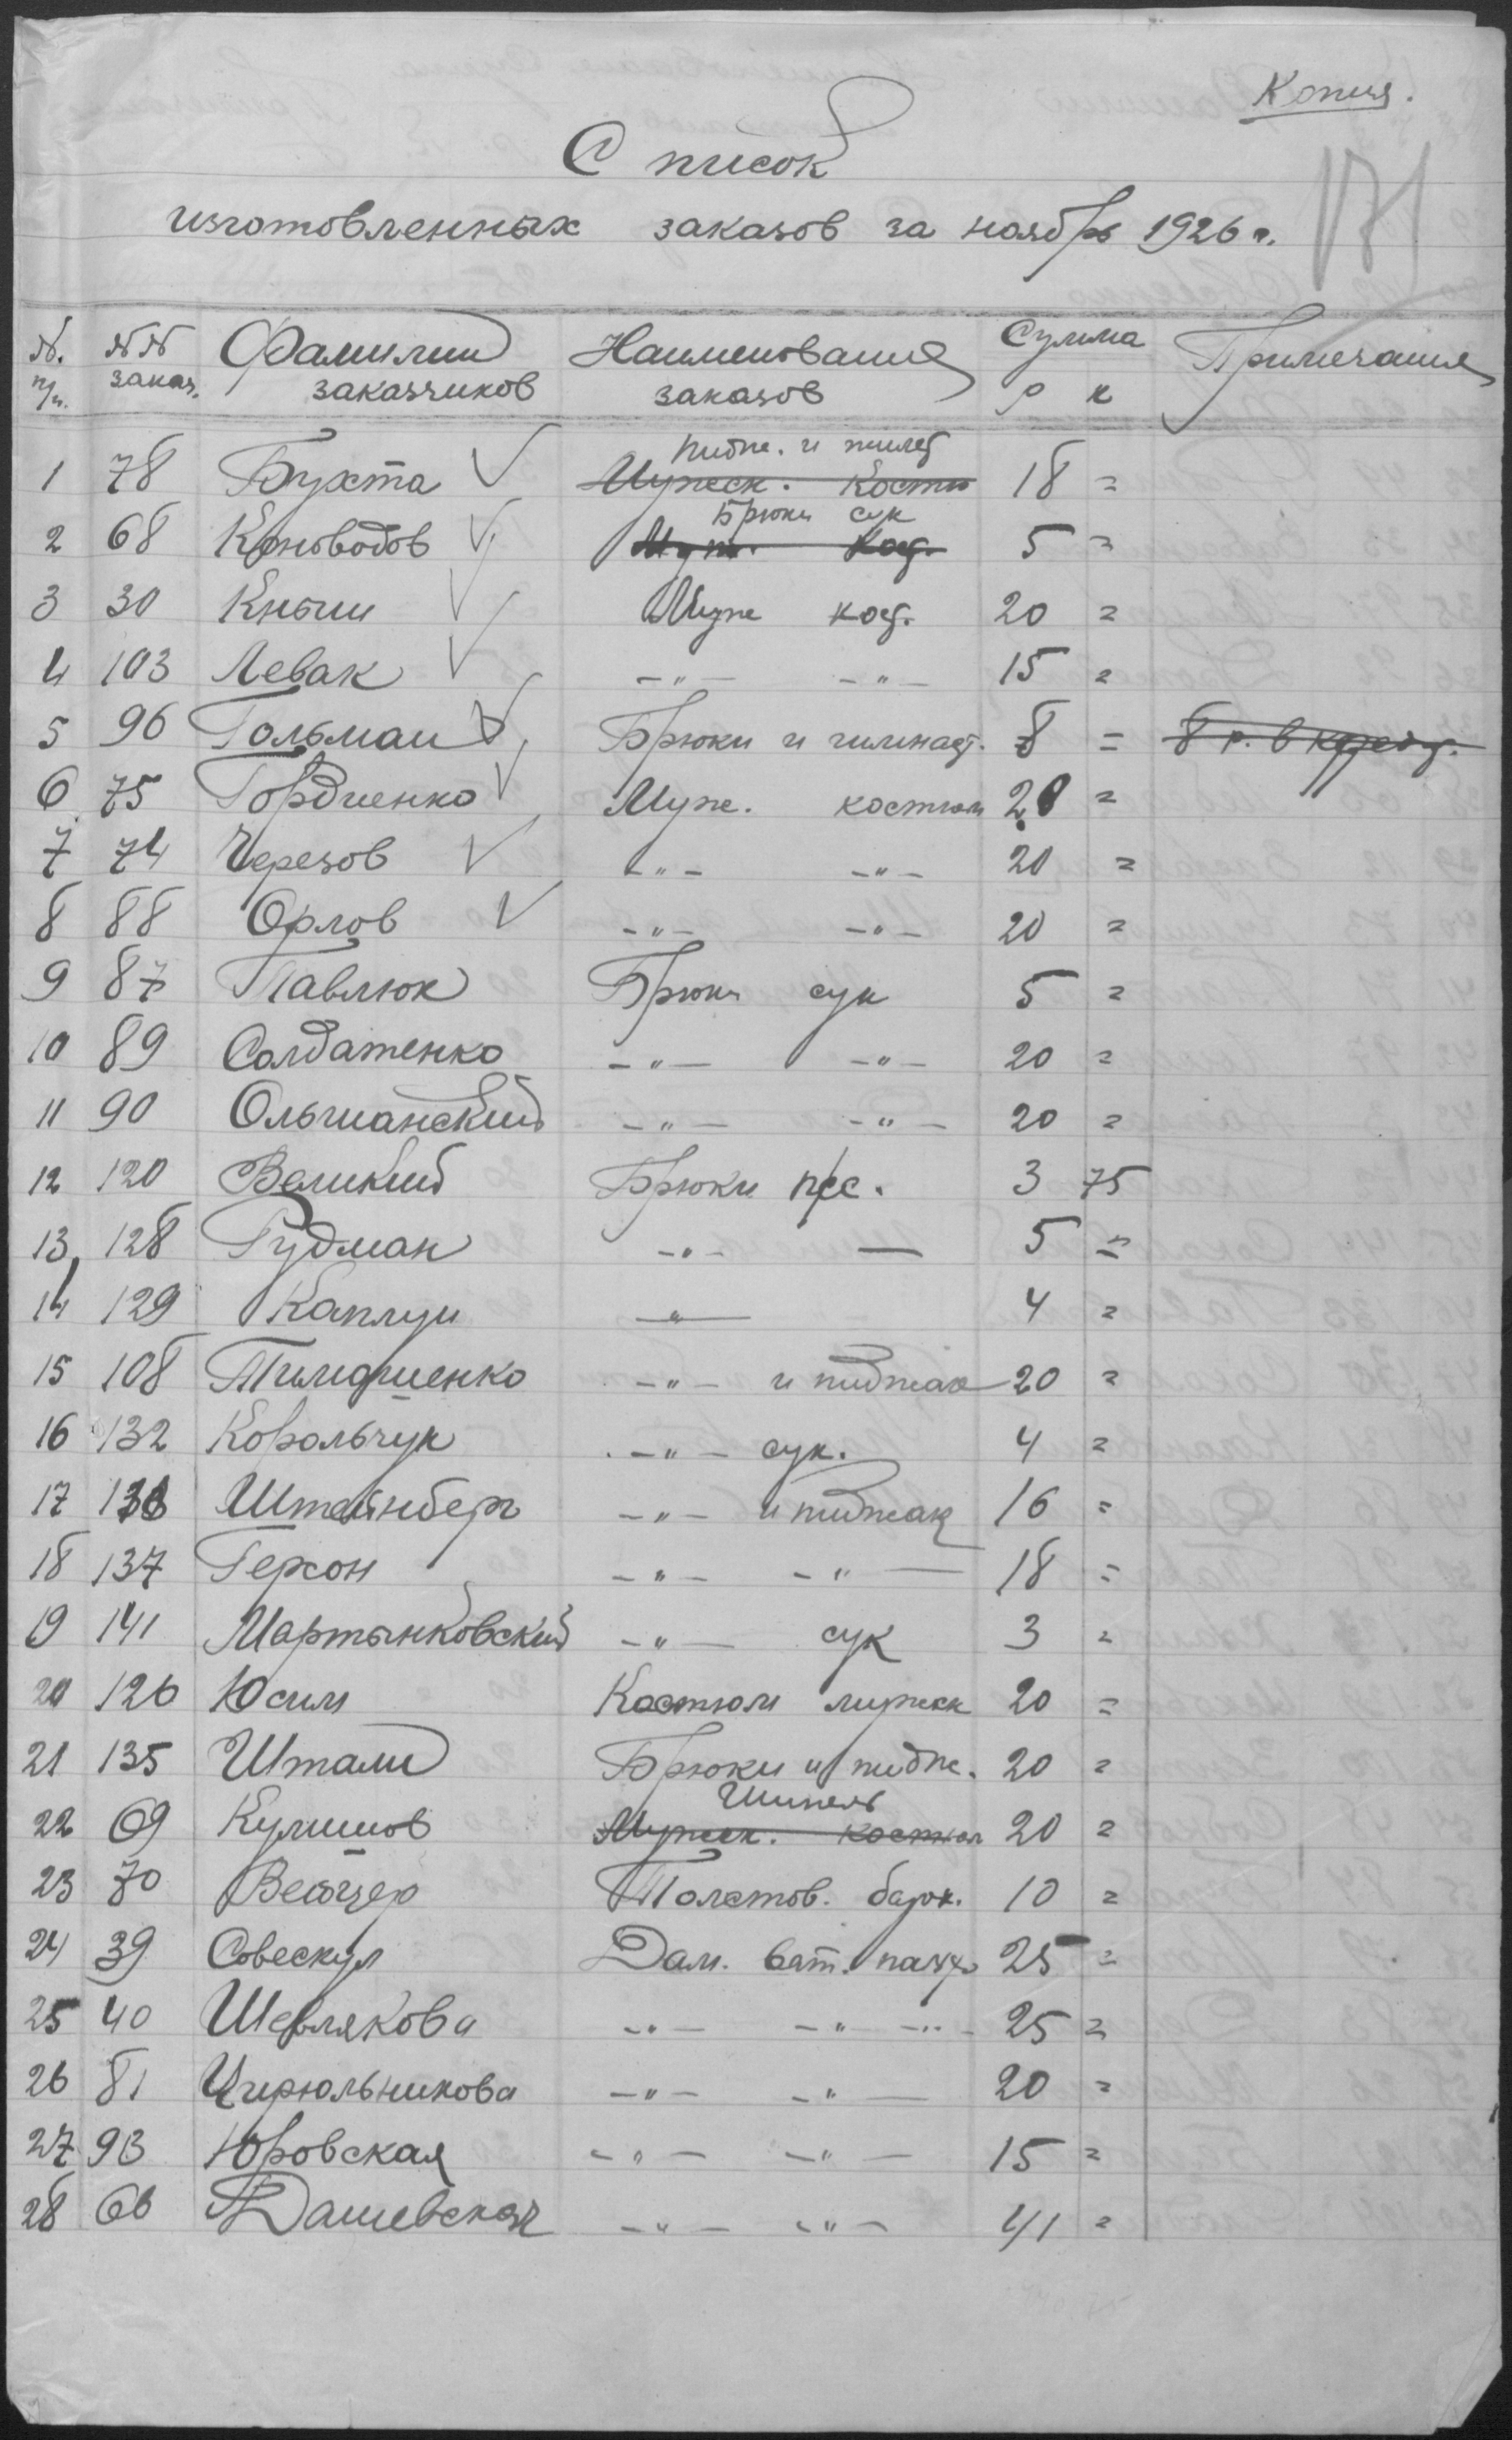 Копия.
171
Список
изготовленных заказов за ноябрь 1926 г.
№ п/п. №№ заказ. Фамилии заказчиков Наименования заказов Сумма р к Примечания
1 78 Бухта ✓ пидж. и жилет 18 =
Мужск. Костю
2 68 Коноводов ✓ Брюки сук 5 =
Муж. Кост.
3 30 Кныш ✓ Муж кост. 20 =
4 103 Левак ✓ -"- -"- 15 =
5 96 Гольман ✓ Брюки и гимнаст. 8 = 8 р. в кредит.
6 75 Гордиенко ✓ Муж. костюм 20 =
7 74 Черезов ✓ -"- -"- 20 =
8 88 Орлов ✓ -"- -"- 20 =
9 87 Павлюк Брюки сук 5 =
10 89 Солдатенко -"- -"- 20 =
11 90 Ольшанский -"- -"- 20 =
12 120 Великий Брюки 3 75
13 128 Гудман -"- — 5 =
14 129 Каплун -"- 4 =
15 108 Тимошенко -"- и пиджак 20 =
16 132 Корольчук -"- сук. 4 =
17 Штейнберг -"- и пиджак 16 =
18 137 Герсон -"- -"- 18 =
19 141 Мартынковский -"- сук 3 =
20 126 Юсим Костюм мужск 20 =
21 135 Штам Брюки и пидж. 20 =
22 69 Кулишов Шинель 20 =
Мужск. костюм
23 70 Вейцер Толстов. барх. 10 =
24 39 Совескул Дам. ват. пальто 25 =
25 40 Шевлякова -"- -"- -"- 25 =
26 81 Цирюльникова -"- -"- 20 =
27 93 Юровская -"- -"- 15 =
28 66 Дашевская -"- -"- 41 =